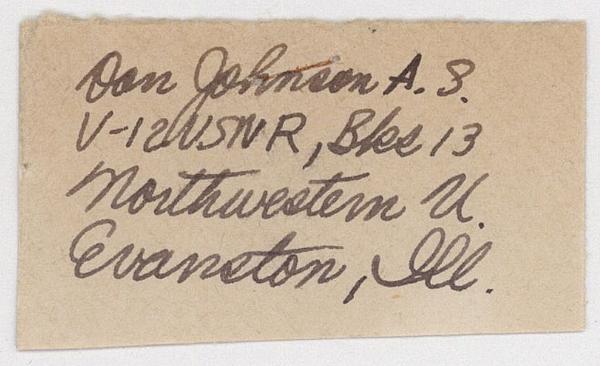 Don Johnson A. S.
V-12 USNR, Bks 13
Northwestern U.
Evanston, Ill.